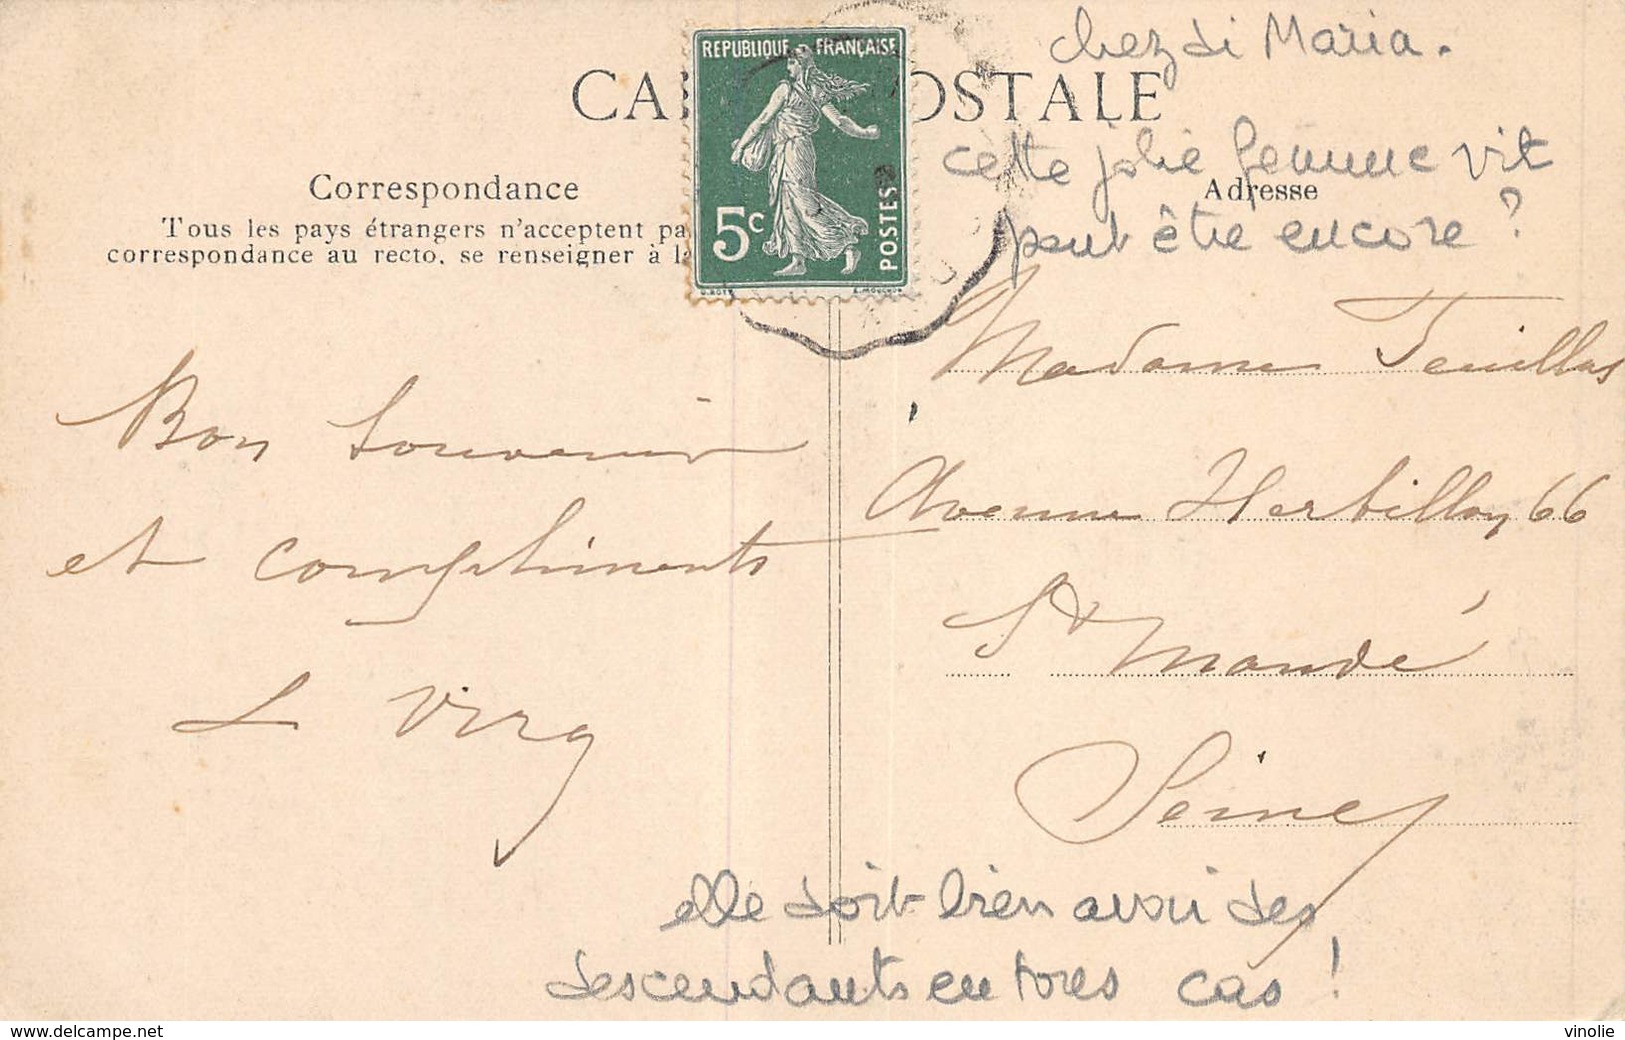 chez di Maria.
REPUBLIQUE FRANÇAISE
5c
POSTES
CA OSTALE
cette jolie femme vit
peut être encore ?
Correspondance
Tous les pays étrangers n'acceptent pa
correspondance au recto, se renseigner à la
Adresse
Madame Feuillas
Avenue Herbillon 66
St Mandé
Seine
Bon Souvenir
et compliments
L Virg
elle doit bien avoir des
descendants en tores cas !
www.delcampe.net
vinolie